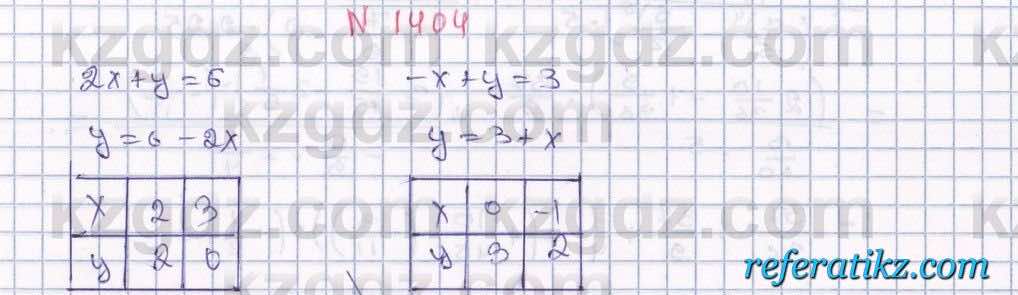 N 1404
2x+y=6 -x+y=3
y=6-2x y=3+x
x 2 3 x 0 -1
y 2 0 y 3 2
kzgdz.com kzgdz.com kzgdz.com
kzgdz.com
kzgdz.com kzgdz.com
referatikz.com